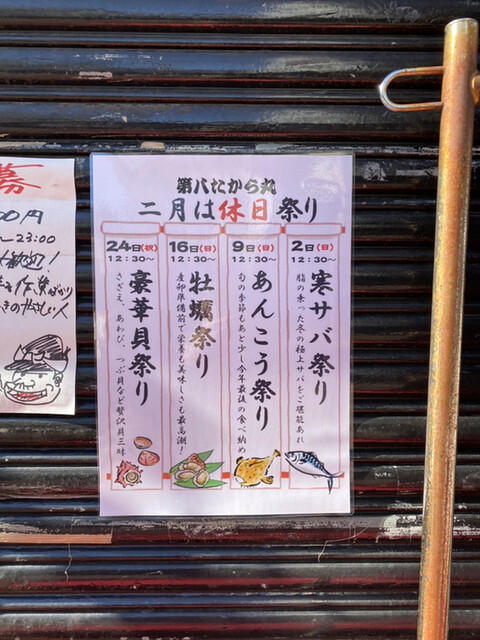 第八たから丸
二月は休日祭り
2日(日)
12:30〜
寒サバ祭り
脂の乗った冬の極上サバをご堪能あれ
9日(日)
12:30〜
あんこう祭り
旬の季節もあと少し今年最後の食べ納め
16日(日)
12:30〜
牡蠣祭り
産卵準備前で栄養も美味しさも最高潮!
24日(祝)
12:30〜
豪華貝祭り
さざえ、あわび、つぶ貝など贅沢貝三昧
募
00円
〜23:00
歓迎!